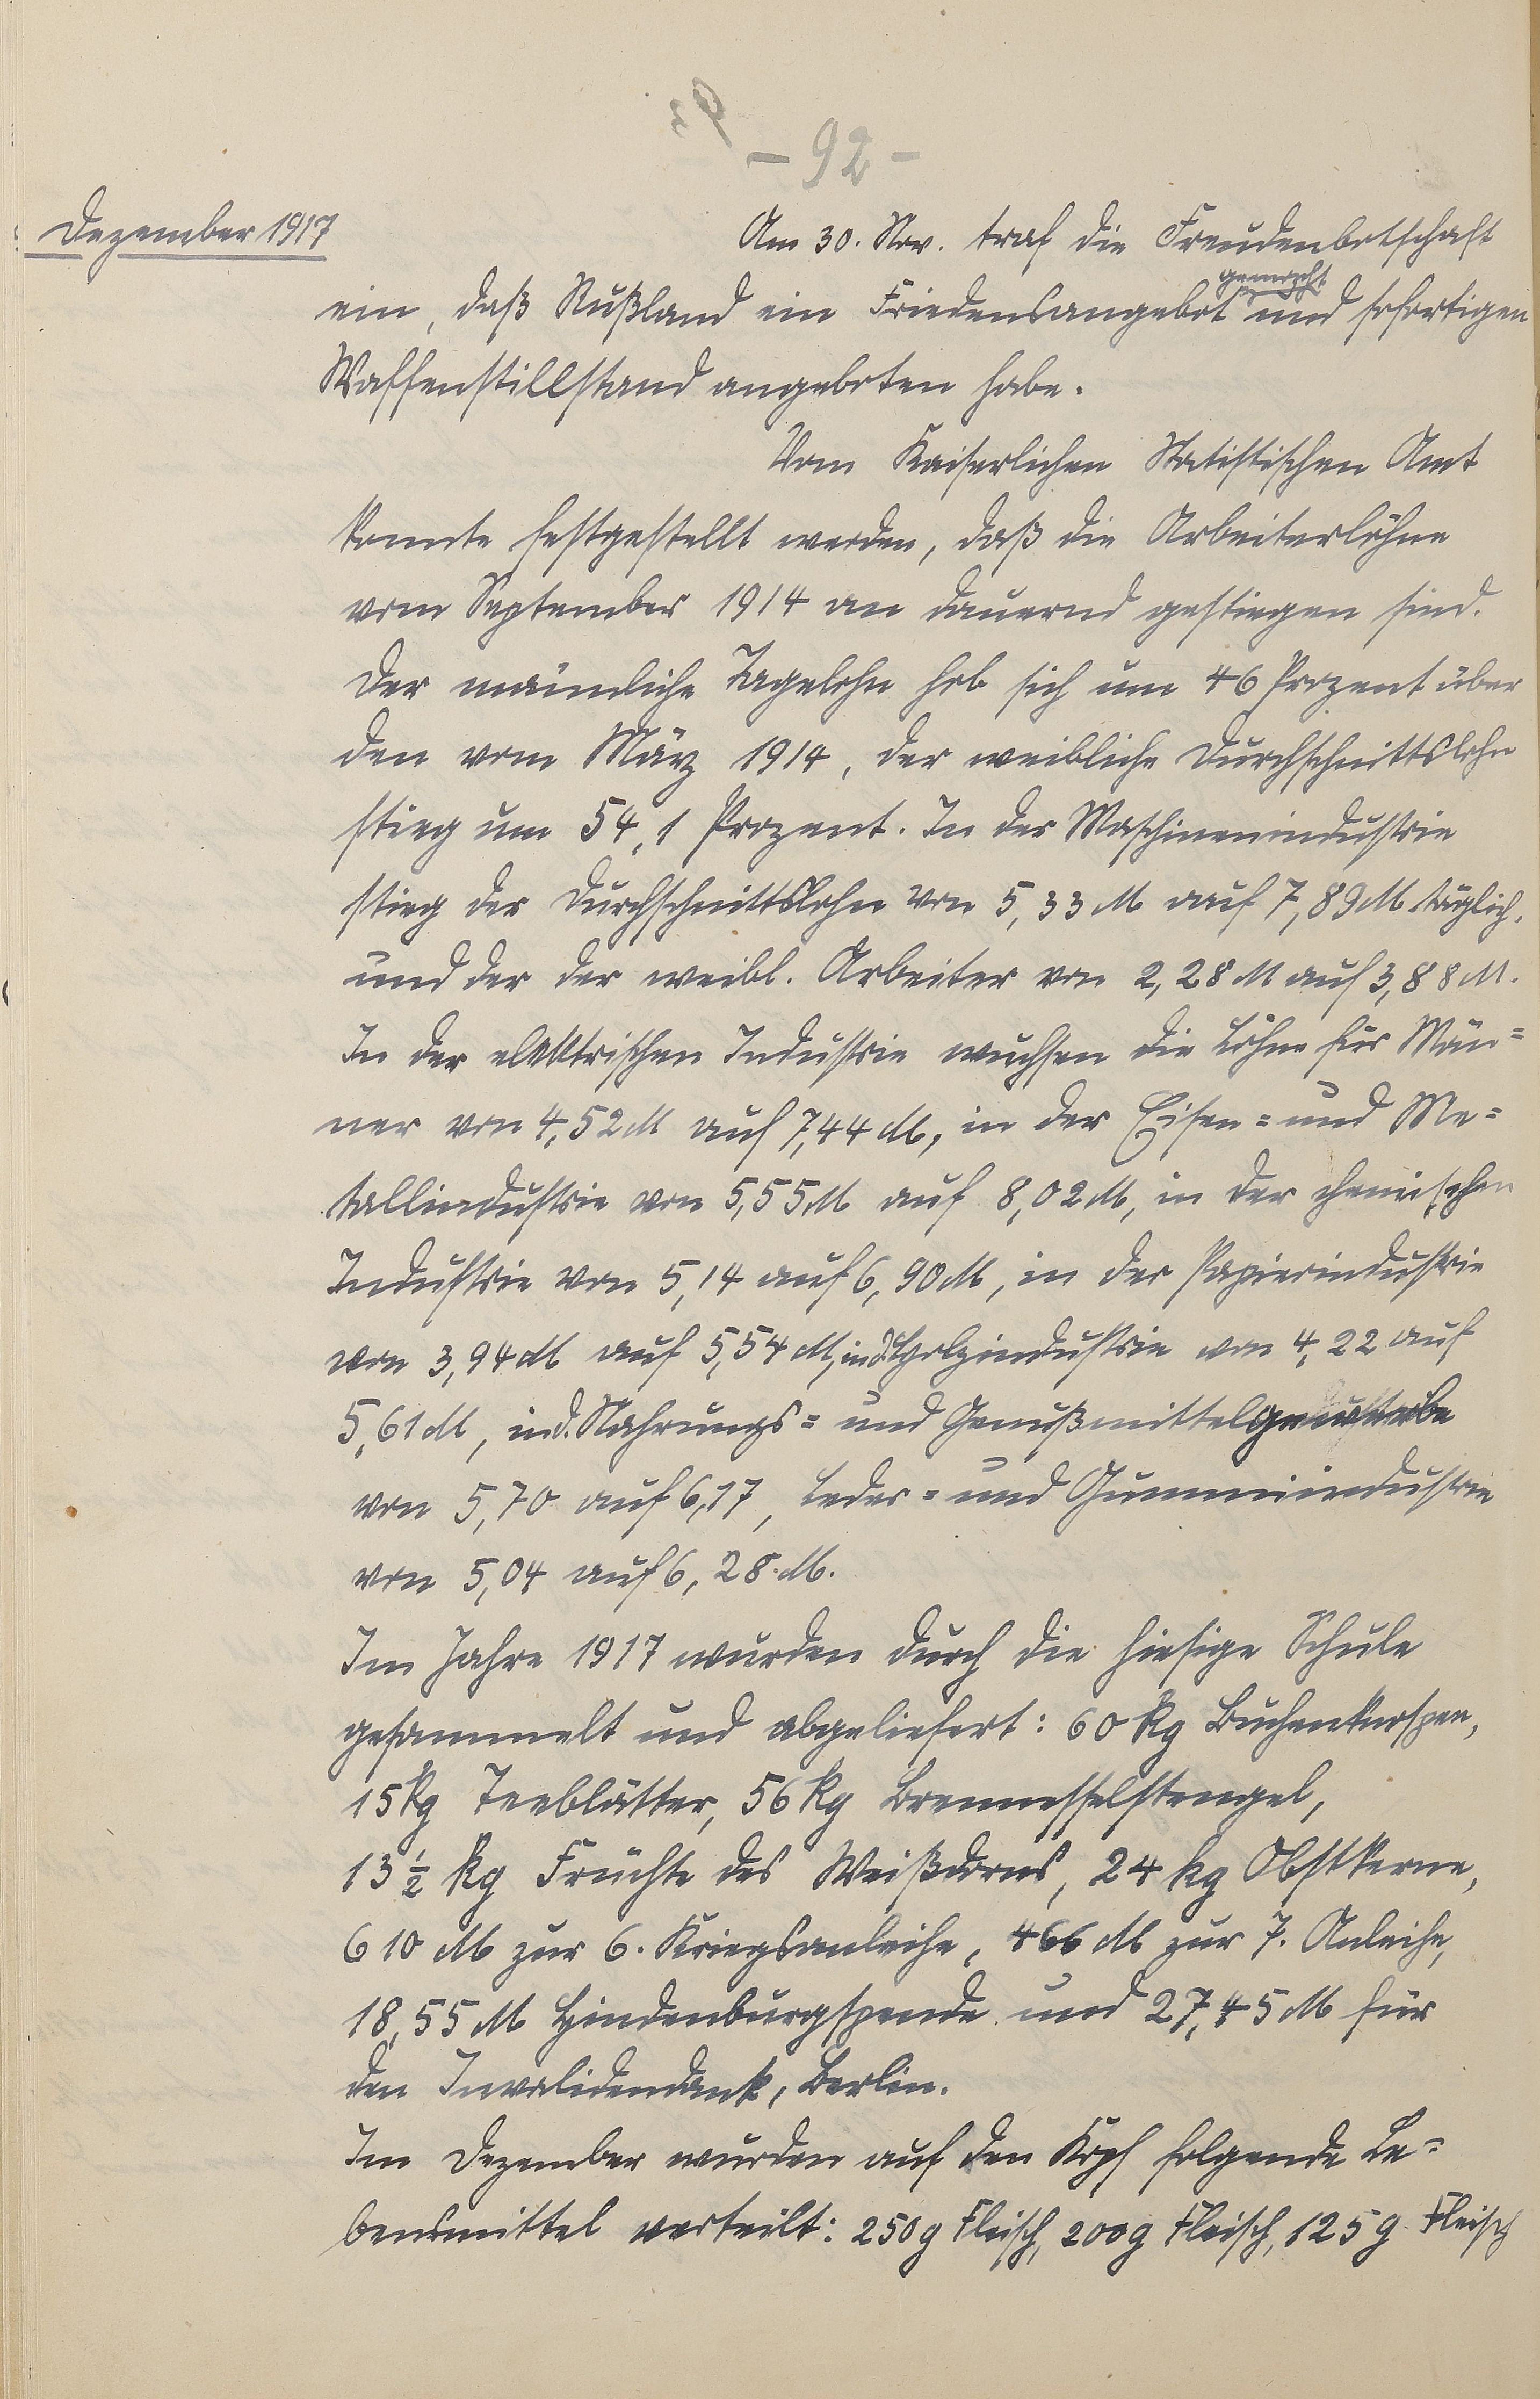 - 92 -
Dezember 1917
Am 30. Nov. traf die Freudenbotschaft
ein, daß Rußland ein Friedensangebot gemacht und sofortigen
Waffenstillstand angeboten habe.
Vom Kaiserlichen Statistischen Amt
konnte festgestellt werden, daß die Arbeiterlöhne
vom September 1914 an dauernd gestiegen sind.
Der männliche Tagelohn hob sich um 46 Prozent über
den vom März 1914, der weibliche Durchschnittslohn
stieg um 54,1 Prozent. In der Maschinenindustrie
stieg der Durchschnittslohn von 5,33 M auf 7,89 M täglich,
und der der weibl. Arbeiter von 2,28 M auf 3,88 M.
In der elektrischen Industrie wuchsen die Löhne für Män=
ner von 4,52 M auf 7,44 M, in der Eisen= und Me=
tallindustrie von 5,55 M auf 8,02 M, in der chemischen
Industrie von 5,14 auf 6,90 M, in der Papierindustrie
von 3,94 M auf 5,54 M, in d. Holzindustrie von 4,22 auf
5,61 M, in d. Nahrungs= und Genußmittelgewerbe
von 5,70 auf 6,17, Leder= und Gummiindustrie
von 5,04 auf 6,28 M.
Im Jahre 1917 wurden durch die hiesige Schule
gesammelt und abgeliefert: 60 kg Buchenknospen,
15 kg Teeblätter, 56 kg Brennesselstengel,
13 1/2 kg Früchte des Weißdorns, 24 kg Obstkerne,
610 M zur 6. Kriegsanleihe, 466 M zur 7. Anleihe,
18,55 M Hindenburgspende und 27,45 M für
den Invalidendank, Berlin.
Im Dezember wurden auf den Kopf folgende Le=
bensmittel verteilt: 250 g Fleisch, 200 g Fleisch, 125 g Fleisch